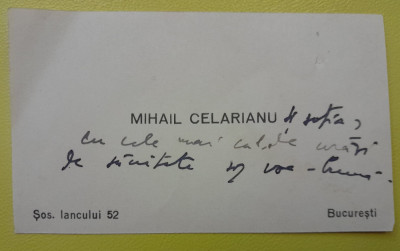 MIHAIL CELARIANU și soția,
cu cele mai calde urări
de sănătate și voe-bună.
Șos. Iancului 52 București